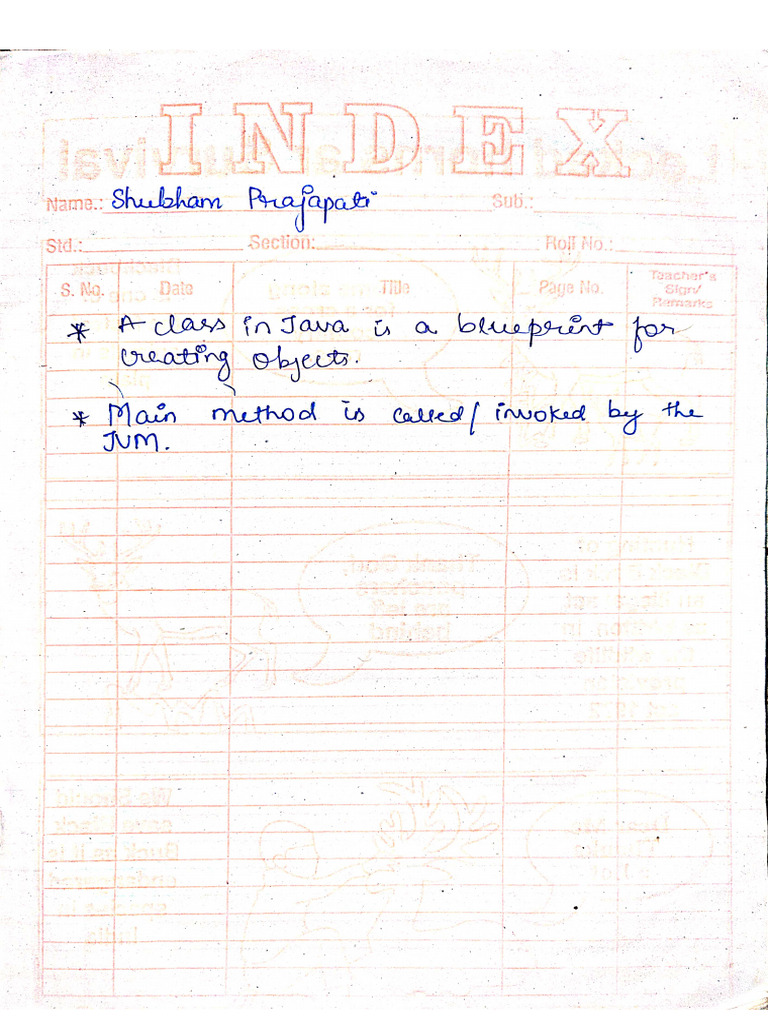 INDEX
Name.: Shubham Prajapati Sub.:
Std.: Section: Roll No.:
S. No. Date Title Page No. Teacher's Sign/ Remarks
* A class in Java is a blueprint for
creating objects.
* Main method is called/invoked by the
JVM.